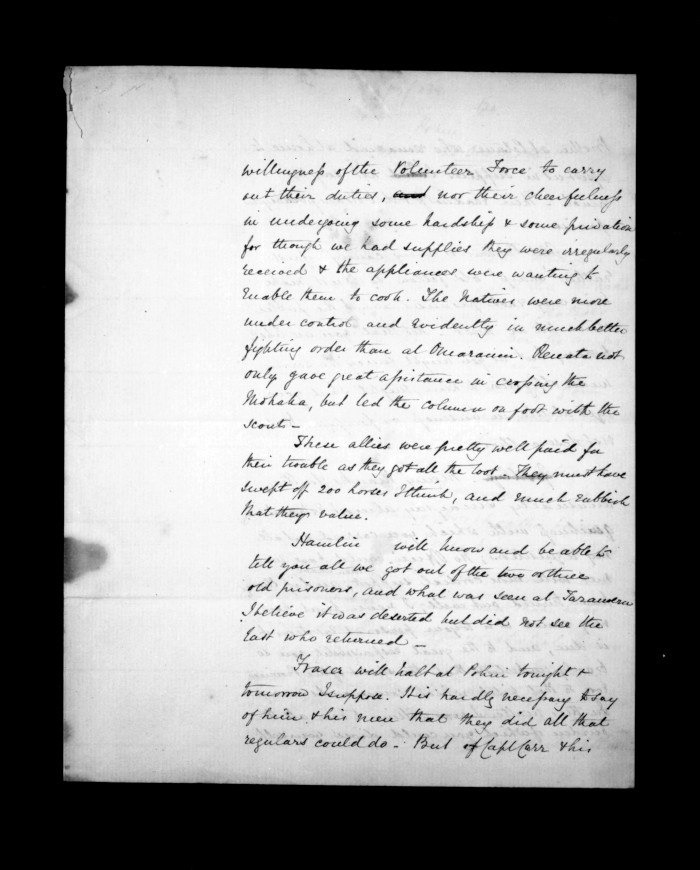 willingness of the Volunteer Force to carry
out their duties, and nor their cheerfulness
in undergoing some hardship & some privation
for though we had supplies they were irregularly
received & the appliances were wanting to
enable them to cook. The Natives were more
under control and evidently in much better
fighting order than at Omaranui. Renata not
only gave great assistance in crossing the
Mohaka, but led the column on foot with the
scouts –
These allies were pretty well paid for
their trouble as they got all the loot. They must have
swept off 200 horses I think, and much rubbish
that they value.
Hamlin will know and be able to
tell you all we got out of the two or three
old prisoners, and what was seen at
I believe it was deserted but did not see the
last who returned –
Fraser will halt at Pohui tonight &
tomorrow I suppose. It is hardly necessary to say
of him & his men that they did all that
regulars could do – But of Capt Carr & his